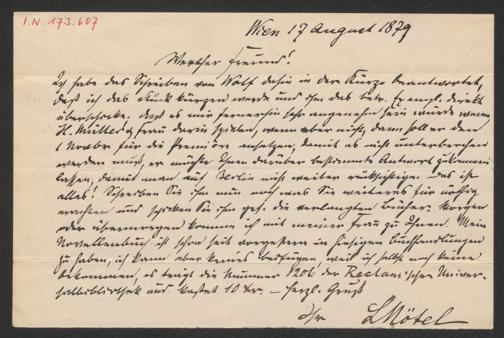 I.N. 173.607
Wien 17 August 1879
Werther Freund!
Ich habe das Schreiben von Wolf dahin in der Kürze beantwortet,
daß ich das Stück kürzen werde und ihm das betr. Exempl. direkt
überschicke. Daß es mir fernerhin sehr angenehm sein würde wenn
H. Müller & Frau darin spielten, wenn aber nicht, dann soll er den
1 Novbr für die Première ansetzen, damit es nicht unterbrochen
werden muß, er möchte Ihnen darüber bestimmte Antwort zukommen
lassen, damit man auf Berlin nicht weiter rücksichtige. — Das ist
alles! Schreiben Sie ihm nun noch was Sie weiteres für nöthig
erachten und schicken Sie ihm gef. die verlangten Bücher. Morgen
oder übermorgen komme ich mit meiner Frau zu Ihnen. Mein
Novellenbuch ist schon seit vorgestern in hiesigen Buchhandlungen
zu haben, ich kann aber keines verfügen, weil ich selbst noch keine
bekommen, es trägt die Nummer 1206 der Reclam'schen Univer-
salbibliothek und kostet 10 kr. — Herzl. Gruß
Ihr